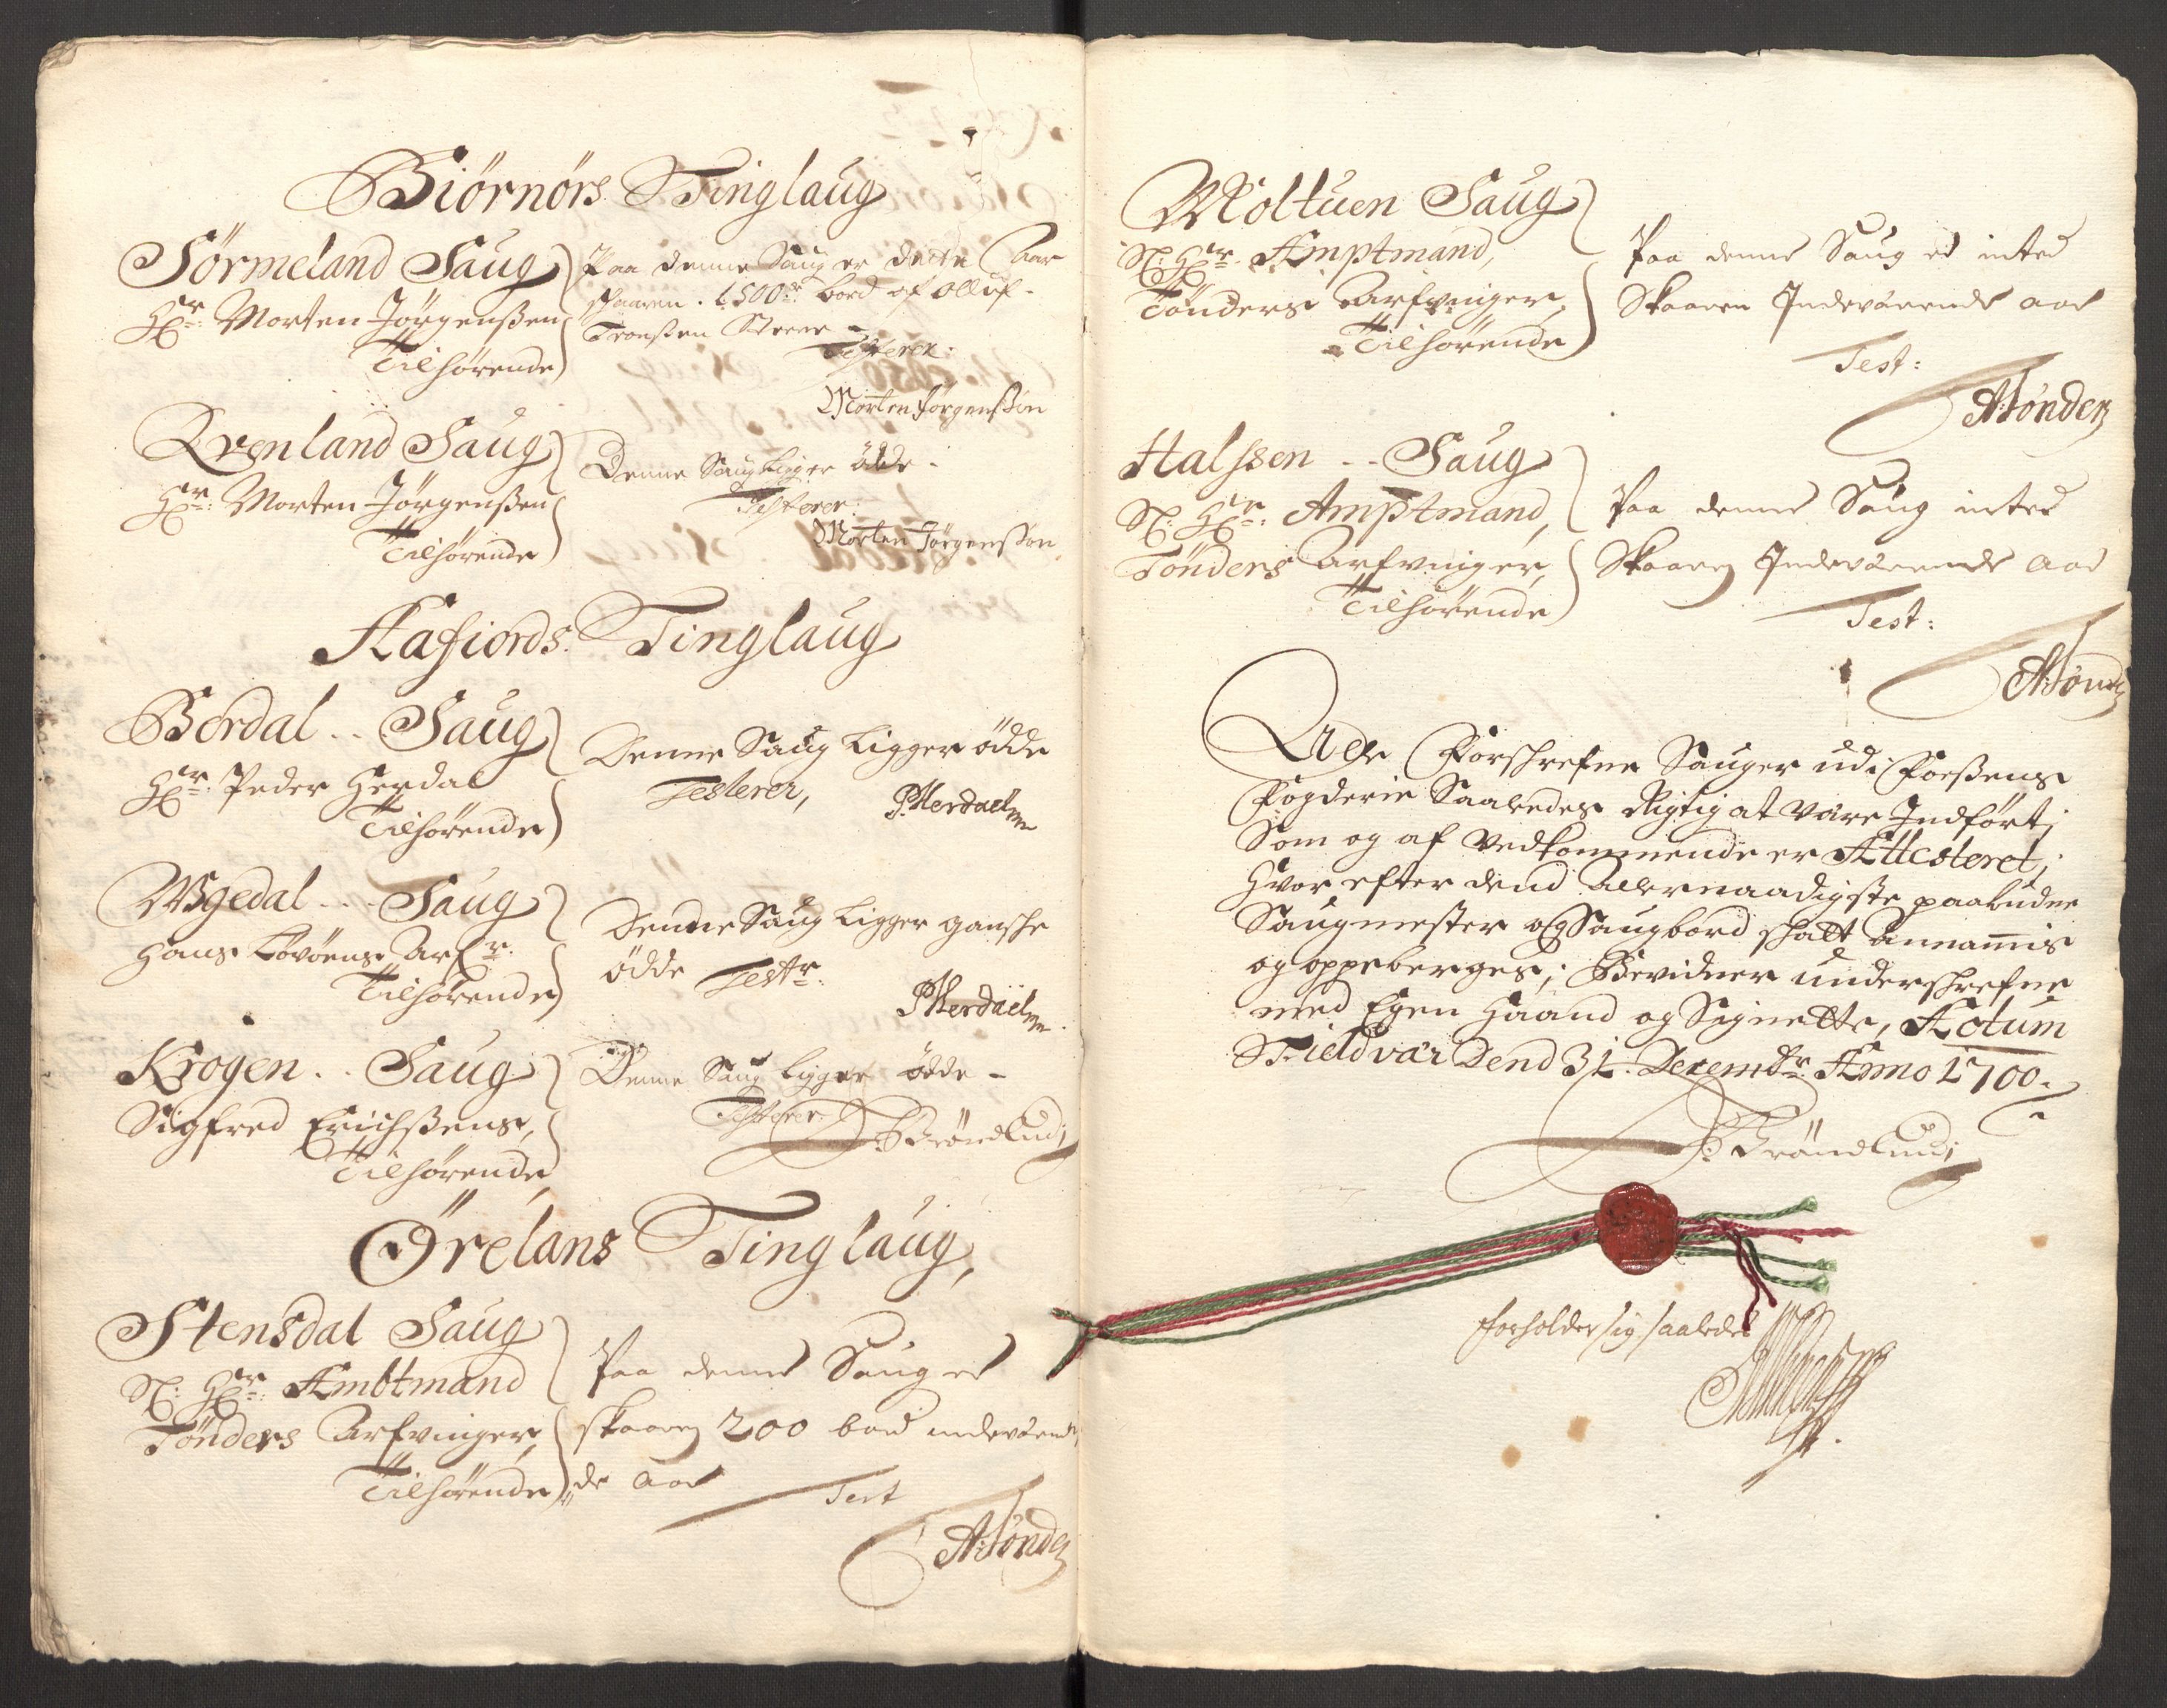 Biörnörs Tinglaug
Sörmeland Saug
Hr: Morten Jörgenßen
Tilhörende
Paa denne Saug er dette Aar
schaaren 1500de bord af Olluf
Tronßen Steene
Testerer
Morten Jörgenßøn
Qvenland Saug
Hr: Morten Jörgenßen
Tilhörende
Denne Saug Ligger ödde
Testerer:
Morten Jörgenßøn
Aafiords Tinglaug
Bordal .. Saug
Hr: Peder Herdal
Tilhörende
Denne Saug Ligger ödde
Testerer,
P: Herdael
Wgedal ... Saug
Hans Lövöens Arf:
Tilhörende
Denne Saug Ligger gansche
ödde Test:
P: Herdael
Krogen .. Saug
Sigfred Erichßens,
Tilhörende
Denne Saug Ligger ödde
Testerer:
Bröndlund
Örelans Tinglaug,
Stensdal Saug
Sl: Hr: Ambtmand
Tönders Arfvinger,
Tilhörende
Paa denne Saug er
skaaren 200 bord indeværen
de aar
Test
A: Tönder
Moltuen Saug
Sl: Hr: Amptmand,
Tönders Arfvinger,
Tilhörende
Paa denne Saug er inted
Skaaren Indeværende aar
Test:
A: Tönder
Halssen .. Saug
Sl: Hr: Amptmand,
Tönders Arfvinger,
Tilhörende
Paa denne Saug inted
Skaaren Indeværende aar
Test:
A: Tönder
Forschrefne Sauger udi Foeßens
Fogderie Saaledes Rigtig at være Indført,
Som og af vedkommende er Attesteret,
Hvor efter dend Allernaadigste paabudne
Saugmester og Saugbord schatt Annammis
og oppeberges; Bevidner underschrefne
med Egen Haand og Signette, Kotum
Tieldvar Dend 31 Decembr: Anno 1700.
Bröndlund
forholder sig saaledes